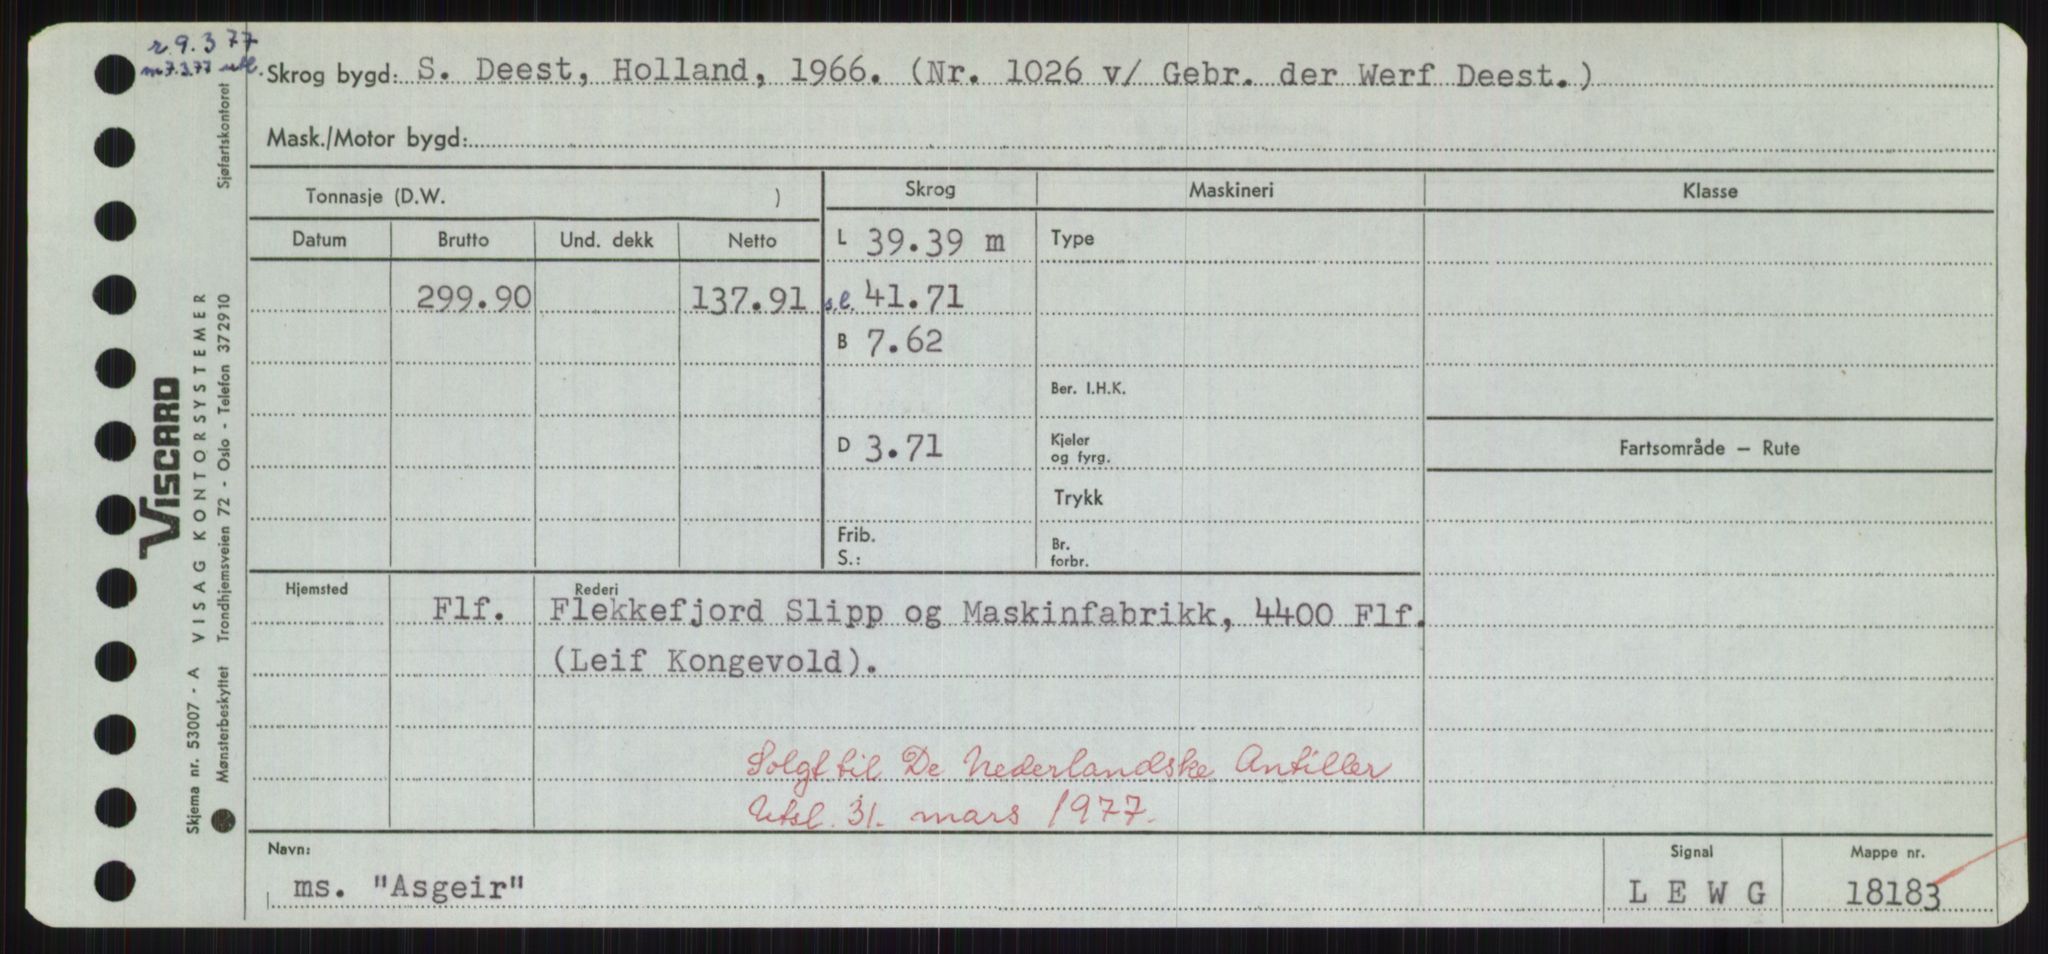 r. 9.3 77
m 7.3.77 utl.
Skrog bygd: S. Deest, Holland, 1966. (Nr. 1026 v/ Gebr. der Werf Deest.)
Mask./Motor bygd:
Tonnasje (D.W. )
Skrog Maskineri Klasse
Datum Brutto Und. dekk Netto
L 39.39 m Type
299.90 137.91 s.l. 41.71
B 7.62
Ber. I.H.K.
D 3.71 Kjeler og fyrg.
Fartsområde – Rute
Trykk
Frib. S.: Br. forbr.
Hjemsted Rederi
Flf. Flekkefjord Slipp og Maskinfabrikk, 4400 Flf.
(Leif Kongevold).
Solgt til De Nederlandske Antiller
Utsl. 31. mars 1977.
Navn: Signal Mappe nr.
ms. "Asgeir" L E W G 18183
VISCARD
Skjema nr. 53007 - A VISAG KONTORSYSTEMER
Mønsterbeskyttet Trondhjemsveien 72 - Oslo - Telefon 372910 Sjøfartskontoret